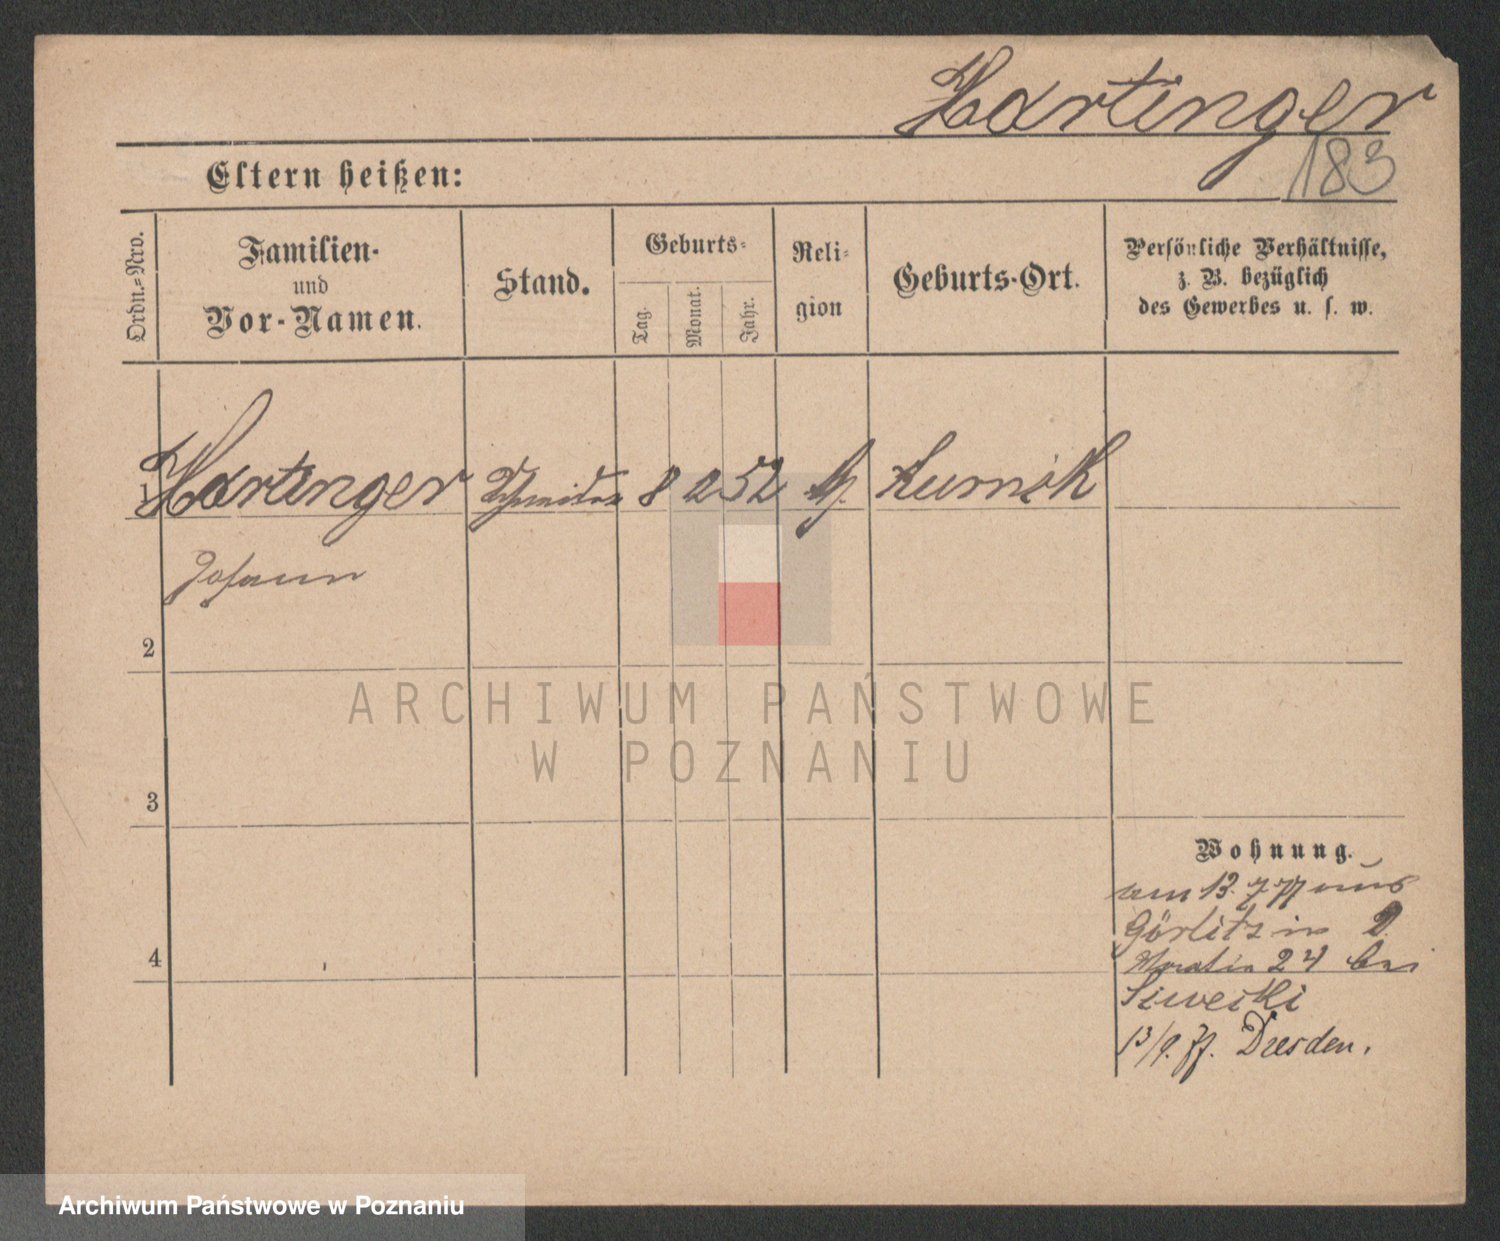 Hartinger
183
Eltern heißen:
Ordn.-Nro.
Familien-
und
Vor-Namen.
Stand.
Geburts-
Tag.
Monat.
Jahr.
Reli-
gion
Geburts-Ort.
Persönliche Verhältnisse,
z. B. bezüglich
des Gewerbes u. s. w.
1 Hartinger 8 2 52 Kurnik
Johann
2
3
4
ARCHIWUM PAŃSTWOWE
W POZNANIU
Wohnung.
am 13. 7 77 aus
Görlitz in
24 bei
Siwecki
13/9. 77. Dresden.
Archiwum Państwowe w Poznaniu